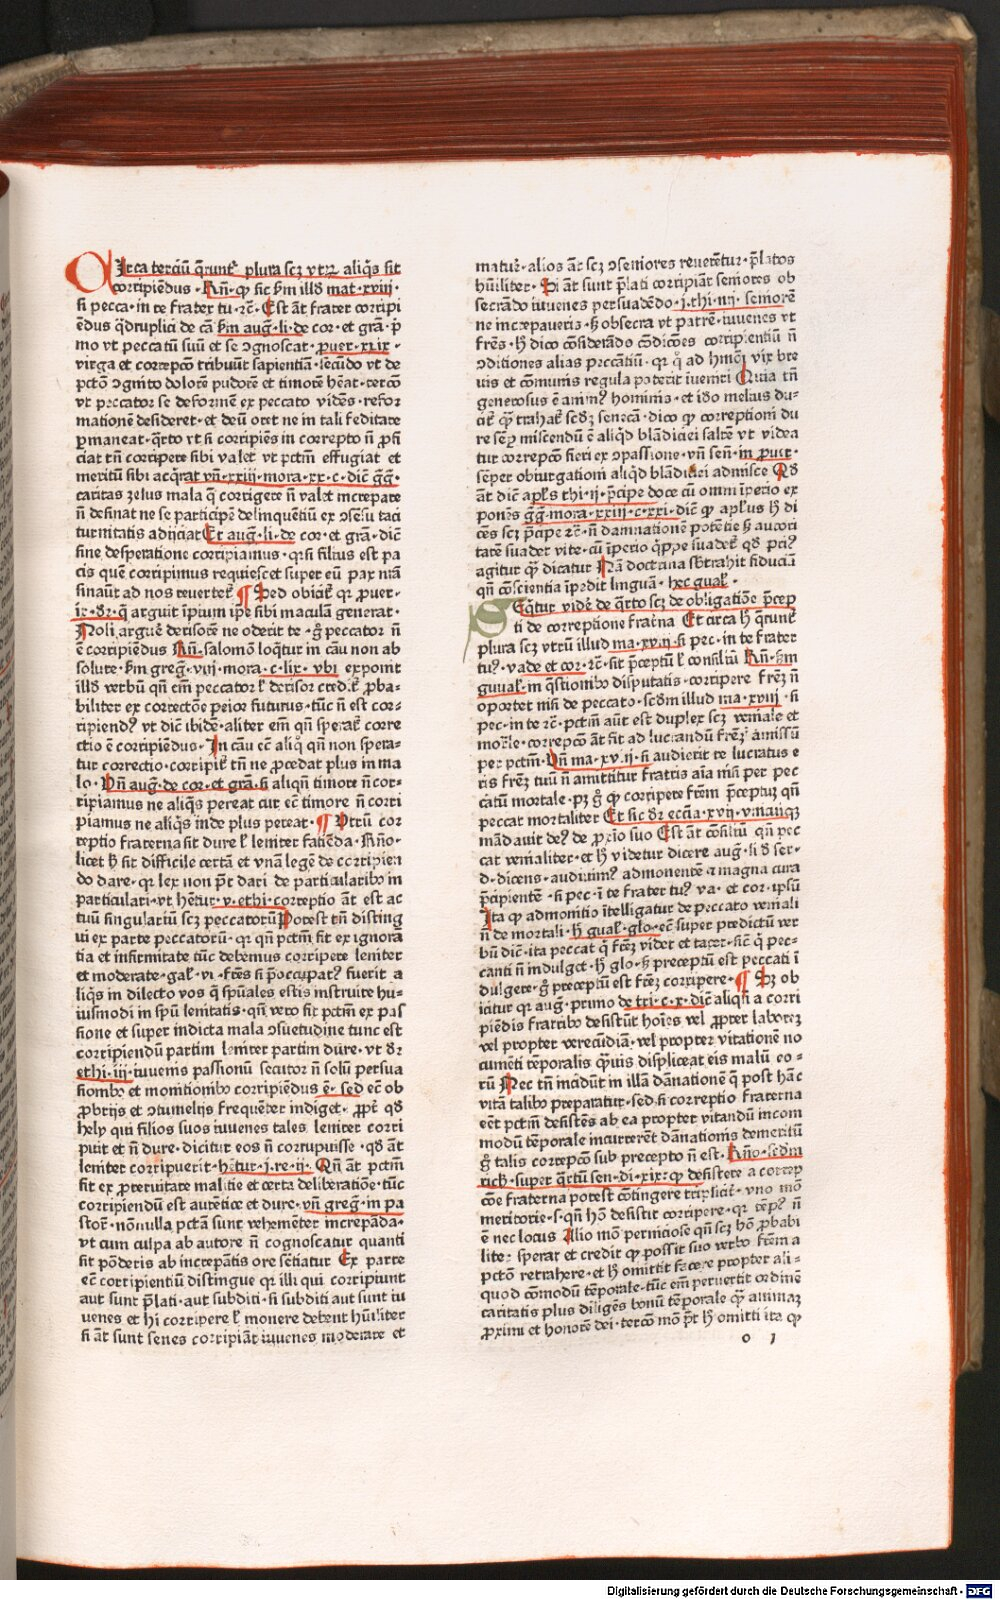 Irca terciū q̄runt᷑ plura scꝫ vtꝝ aliq̄s sit
corripiēdus · Rn̄ · ꝙ sic ẜm illđ mat · xviij ·
si pecca · in te frater tu · ⁊c̄ · Est āt frater corripi
ēdus q̄druplici de cā ẜm auḡ · li · de cor · et grā · p̄
mo vt peccatū suū et se ↄgnoscat · ꝓuer · xxix ·
virga et correpcō tribuūt sapientiā · secūdo vt de
pctō ↄgnito dolorē pudorē et timorē hēat · tercō
vt peccator se deformē ex peccato vidēs · refor
mationē desideret · et deū oret ne in tali feditate
ꝑmaneat · q̄rto vt si corripiēs in correpto n̄ ꝓfi
ciat tn̄ corripere sibi valet vt pctm̄ effugiat et
meritū sibi acq̄rat vn̄ · xxiij · mora · xx · c · dic̄ ḡḡ ·
caritas zelus mala q̄ corrigere n̄ valet increpare
n̄ definat ne se participē delinquētiū ex ↄsēsu taci
turnitatis adijciat Et auḡ · li · de cor · et grā · dic̄
sine desperatione corripiamus · qꝛ si filius est pa
cis quē corripimus requiescet super eū pax nrā
sinaūt ad nos reuertet᷑ ¶ Sed obicit᷑ qꝛ ꝓuer ·
ix · dꝛ · q̄ arguit īpium ip̄e sibi maculā generat ·
Noli arguē derisorē ne oderit te · g̊ peccator n̄
ē corripiēdus Rn̄ · salomō loq̄tur in cāu non ab
solute · ẜm greḡ · viij · mora · c · lix · vbi exponit
illđ verbū qn̄ em̄ peccator ł derisor credit᷑ ꝓba-
biliter ex correctōe peior futurus · tūc n̄ est cor-
ripiendꝰ vt dic̄ ibidē · aliter em̄ qn̄ sperat᷑ corre
ctio ē corripiēdus · In cāu ec̄ aliq̊ qn̄ non spera-
tur correctio · corripit᷑ tn̄ ne ꝓcedat plus in ma
lo · Vn̄ auḡ · de cor · et grā · si aliqn̄ timore n̄ cor-
ripiamus ne aliq̄s pereat cur ec̄ timore n̄ corri
piamus ne aliq̄s inde plus pereat · ¶ Vtrū cor
reptio fraterna sit dure ł leniter faciēda · Rn̄o ·
licet ꝙ sit difficile certā et vnā legē de corripien
do dare · qꝛ lex non pt̄ dari de particularibꝯ in
particulari · vt hētur · v · ethi · correptio āt est ac
tuū singulariū scꝫ peccatorū Potest tn̄ disting
ui ex parte peccatorū · qꝛ qn̄ pctm̄ sit ex ignorā
tia et infirmitate tūc debemus corripere leniter
et moderate · gal᷑ · vi · fr̄es si p̄occupatꝰ fuerit a
liq̄s in dilecto vos q̄ spūales estis instruite hu-
iusmodi in spū lenitatis · qn̄ vero sit pctm̄ ex pas
sione et super indicta mala ↄsuetudine tunc est
corripiendū partim leniter partim dure · vt dꝛ
ethi · iij · iuuenis passionū secutor n̄ solū persua
sionibꝯ et monitionibꝯ corripiēdus ē · sed ec̄ ob
ꝓbrijs et ↄtumelijs frequēter indiget · ꝓpt̄ qđ
hely qui filios suos iuuenes tales leniter corri
puit et n̄ dure · dicitur eos n̄ corrupuisse · qđ āt
leniter corripuerit · hētur · j · re · ij · Qn̄ āt pctm̄
sit ex ꝓteruitate malitie et certa deliberatiōe · tūc
corripiendū est autētice et dure · vn̄ greḡ · in pa
stoꝝ · nōnulla pctā sunt vehemēter increpāda ·
vt cum culpa ab autore n̄ cognoscatur quanti
sit pōderis ab increpātis ore sētiatur Ex parte
ec̄ corripientiū distingue qꝛ illi qui corripiunt
aut sunt p̄lati · aut subditi · si subditi aut sunt iu
uenes et hi corripere ł monere debent hūiliter
si āt sunt senes corripiāt iuuenes moderate et
matur᷑ · alios āt scꝫ ↄseniores reuerētur · p̄latos
hūiliter · Si āt sunt p̄lati corripiāt seniores ob
secrādo iuuenes persuadēdo · j · thi · iiij · seniorē
ne increpaueris · ꝫ obsecra vt patrē · iuuenes vt
fr̄es · h̄ dico cōsiderādo cōdicōes corripientiū n̄
ↄditiones alias peccātiū · qꝛ q̊ ad hmōi vix bre
uis et cōmunis regula poterit iueniri Quia tn̄
generosus ē animꝰ hominis · et iđo melius du-
cit᷑ qͣ trahat᷑ scđꝫ senecā · dico ꝙ correptioni du
re sēꝑ miscendū ē aliq̄d blādiciei saltē vt videa
tur correpcō fieri ex ↄpassione · vn̄ sen̄ · in ꝓuer ·
sēper obiurgationi aliq̄d blādiciei admisce Qđ
āt dic̄ apl̄s thi · ij · p̄cipe doce cū omni īperio ex
ponēs ḡḡ · mora · xxiij · c · xxi · dic̄ ꝙ apl̄us h̄ di
cēs scꝫ p̄cipe ⁊c̄ · n̄ damnationē potētie ꝫ aucori
tatē suadet vite · cū īperio q̄ppe suadet᷑ qđ priꝰ
agitur qͣ dicatur Nā doctrinā sb̄trahit fiduciā
qn̄ cōscientia īpedit linguā · hec gual᷑ ·
Eq̄tur vidē de q̄rto scꝫ de obligatiōe p̄cep
ti de correptione fraterna Et circa h̄ q̄runt᷑
plura scꝫ vtrū illud ma · xviij · si pec · in te frater
tuꝰ · vade et cor · ⁊c̄ · sit p̄ceptū ł consiliū Rn̄ · ẜm
guual᷑ · in q̄stionibꝯ disputatis · corripere fr̄eꝫ n̄
oportet nisi de peccato · scđm illud ma · xviij · si
pec · in te ⁊c̄ · pctm̄ aūt est duplex scꝫ veniale et
mor̄le · correpcō āt sit ad lucrandū fr̄eꝫ amissū
per pctm̄ · Vn̄ ma · xviij · si audierit te lucratus e
ris fr̄eꝫ tuū n̄ amittitur fratris aīa nisi per pec
catū mortale · pꝫ g̊ ꝙ corripere fr̄em p̄ceptuꝫ qn̄
peccat mortaliter Et sic dꝛ eccīa · xvij · vnaiqꝫ
mādauit deꝰ de ꝓxio suo Est āt cōsiliū qn̄ pec
cat venialiter · et h̄ videtur dicere auḡ · li đ ser ·
d · dicens · audiuimꝰ admonentē ⁊ magna cura
p̄cipientē · si pec · ī te frater tuꝰ va · et cor · ipsū
Ita ꝙ admonitio ītelligatur de peccato veniali
n̄ de mortali · h̄ gual᷑ · glo · ec̄ super predictū ver
bū dic̄ · ita peccat q̄ fr̄eꝫ videt et tacet · sic̄ q̄ pec-
canti n̄ indulget · h̄ glo · ꝫ preceptū est peccati ī
dulgere · g̊ preceptū est fr̄eꝫ corripere · ¶ Sꝫ ob
icitur qꝛ auḡ · primo de tri · c · x · dic̄ aliqn̄ a corri
piēdis fratribꝯ desistūt hoīes vel ꝓpter laboreꝫ
vel propter verecūdiā · vel propter vitationē no
cumēti tēporalis q̄uis displiceat eis malū eo-
rū Nec tn̄ incidūt in illā dānationē q̄ post hāc
vitā talibꝯ preparatur · sed · si correptio fraterna
eēt pctm̄ desistēs ab ea propter vitandū incom
modū tēporale incurrerēt dānationis demeritū
g̊ talis correpcō sub precepto n̄ est · Rn̄o · scđm
rich · super q̄rtū sen · di · xix · ꝙ desistere a correp
cōe fraterna potest cōtingere tripl̄icit᷑ · vno mō
meritorie · s · qn̄ hō desistit corripere · qꝛ tēpꝰ n̄
ē nec locus Alio mō perniciose qn̄ scꝫ hō ꝓbabi
liteꝛ sperat et credit ꝙ possit suo verbo fr̄em a
pctō retrahere · et h̄ omittit facere propter ali-
quod cōmodū tēporale · tūc em̄ peruertit ordinē
caritatis plus diligēs bonū tēporale qͣ animaꝫ
ꝓximi et honorē dei · tercō mō pt̄ h̄ omitti ita ꝙ
o 1
Digitalisierung gefördert durch die Deutsche Forschungsgemeinschaft - DFG